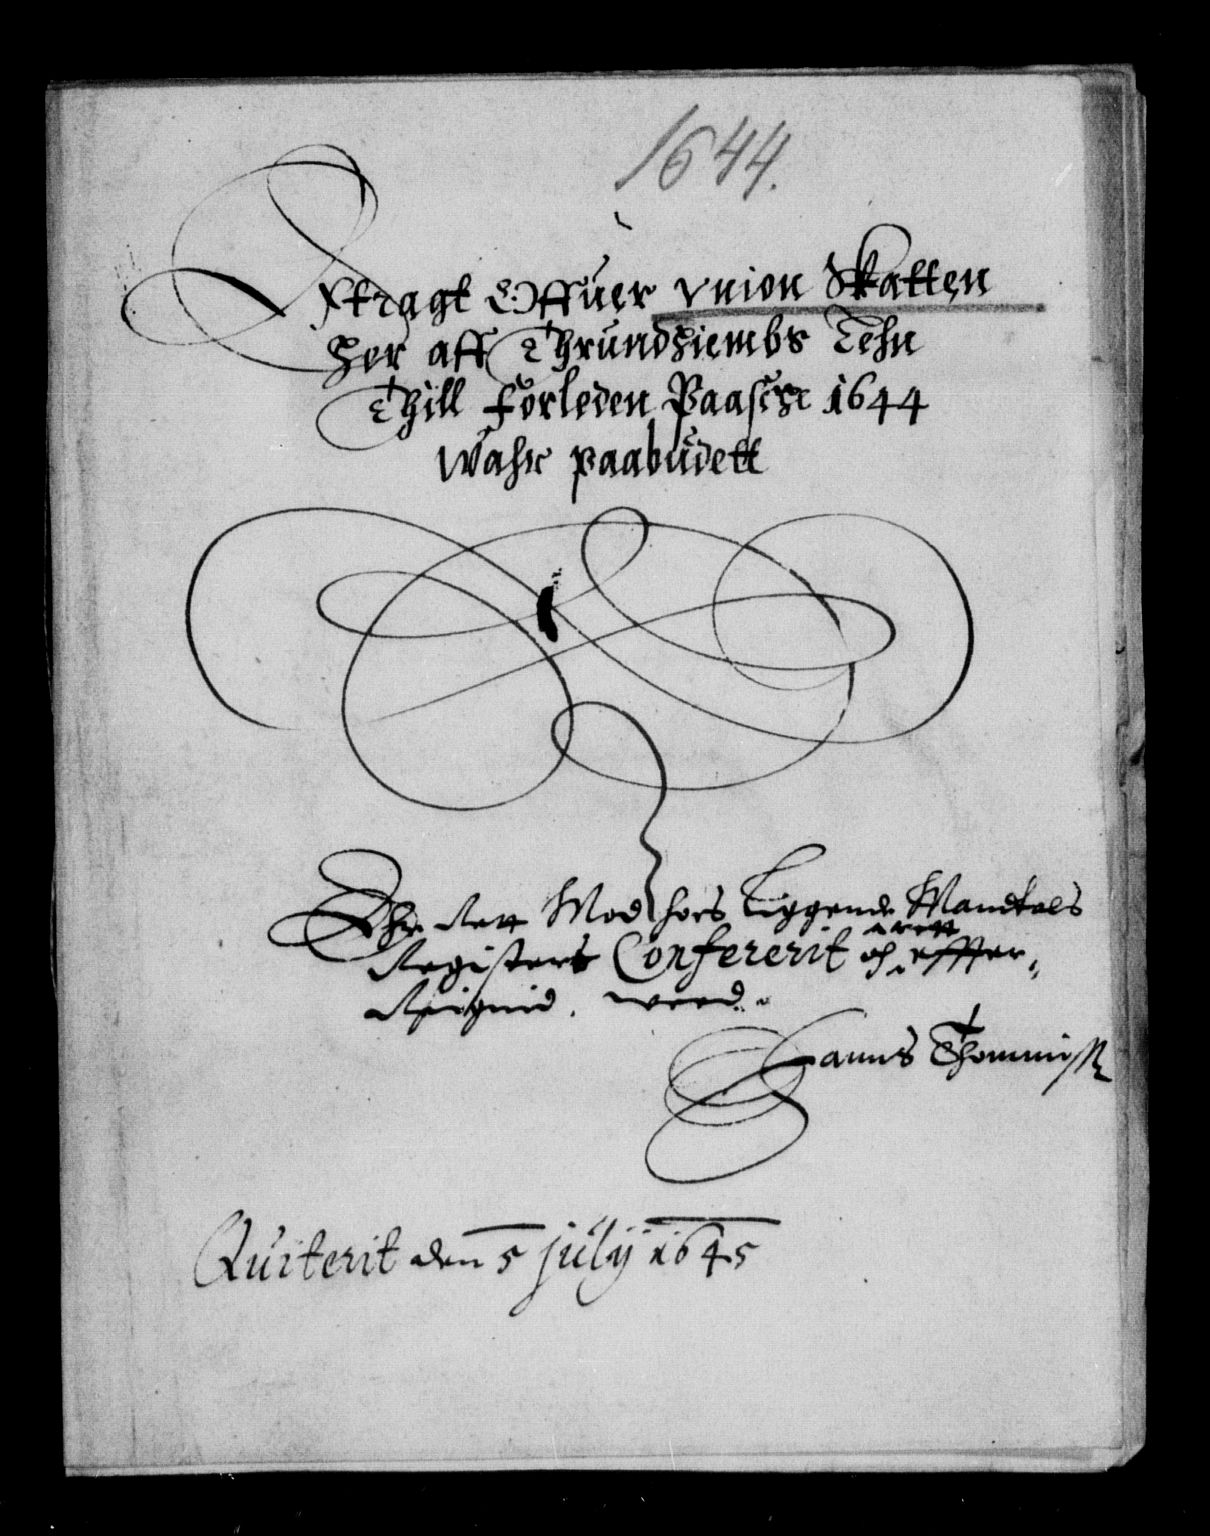 1644.
Extragt Offuer Vnion Skatten
her aff Thrundhiembs Lehn
Thill forleden Paasche 1644
Wahr paabudett
Ehr Rett Mod hoes liggende Mandtals
arett
Registers Confererit och effter
Reignid. weed.
Hanns Thommiss
Quiterit den 5 julij 1645